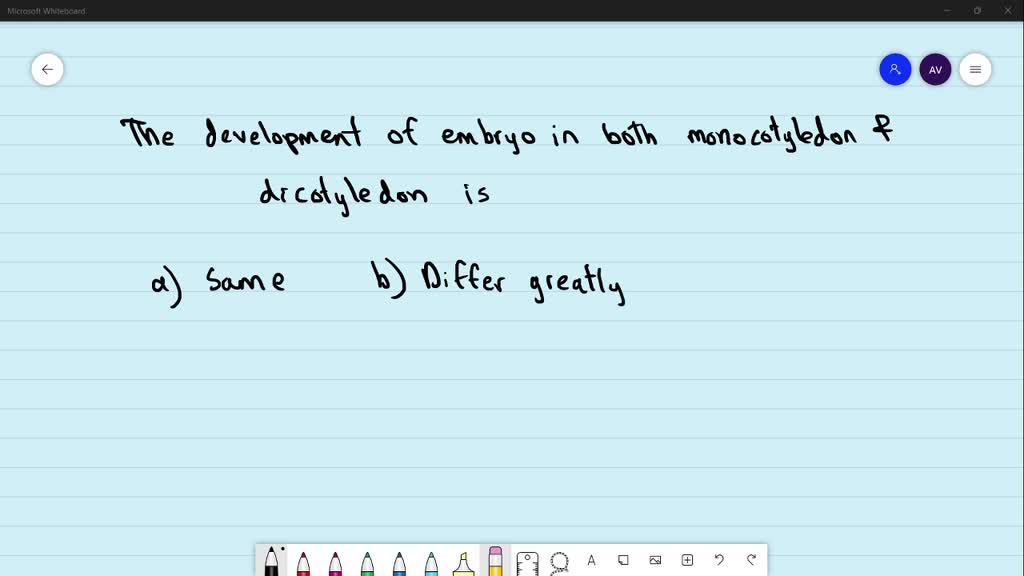 Microsoft Whiteboard
AV
The development of embryo in both monocotyledon &
dicotyledon is
a) Same b) Differ greatly
A